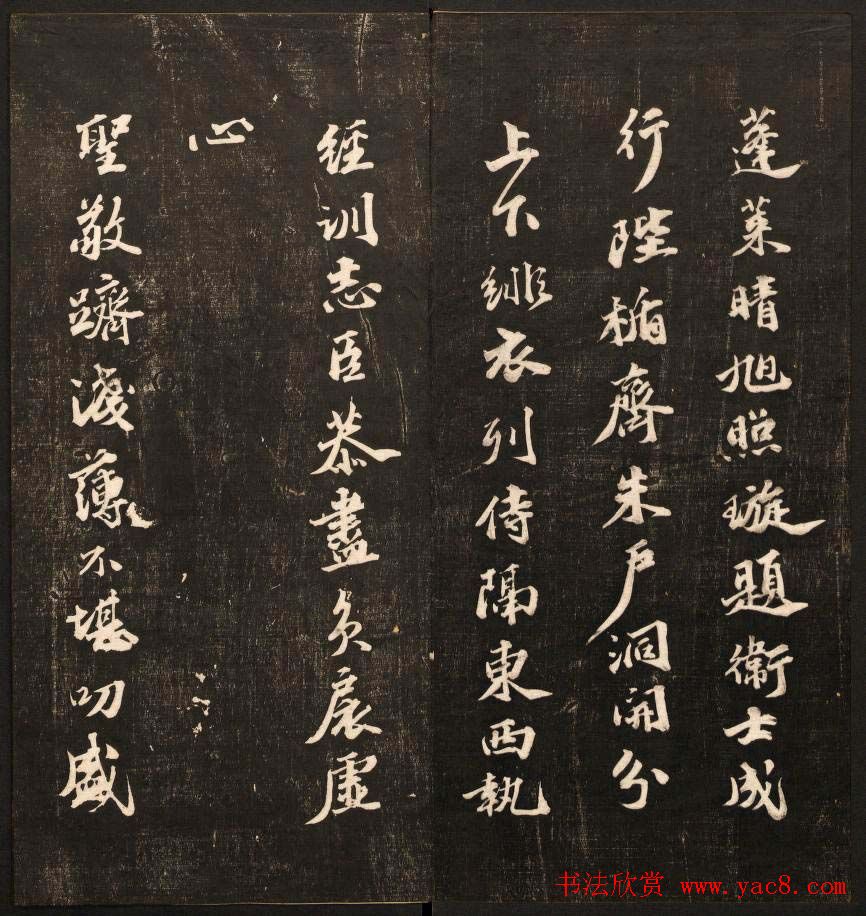 蓬萊晴旭照璇題衛士成
行陛楯齊朱戶洞開分
上下緋衣列侍隔東西執
經訓志臣恭盡負扆虛
心
聖敬躋淺薄不堪叨盛
书法欣赏 www.yac8.com